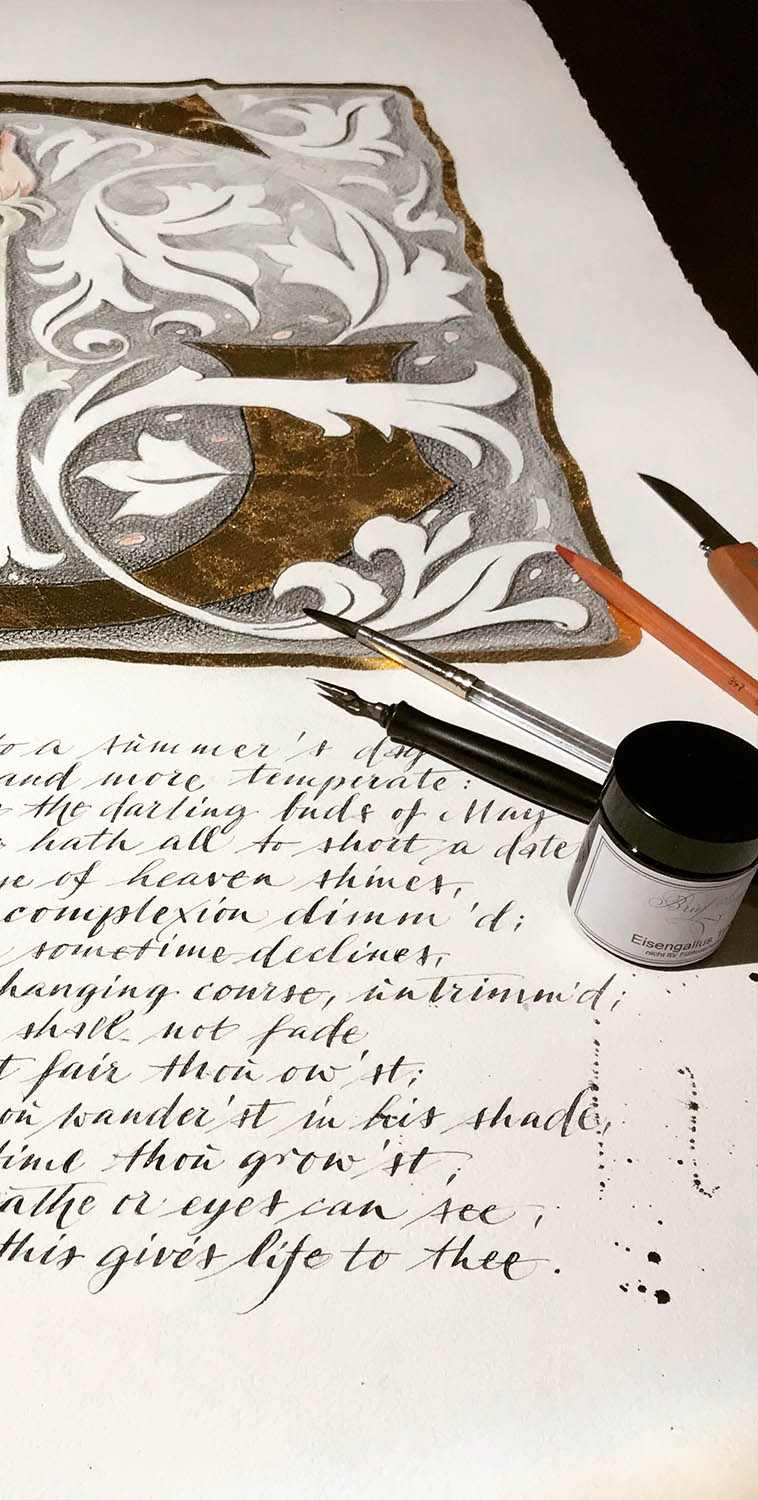 to a summer's day
and more temperate:
the darling buds of May
hath all to short a date
of heaven shines,
complexion dimm'd;
sometime declines,
changing course, untrimm'd;
shall not fade
fair thou ow'st;
wander'st in his shade,
time thou grow'st,
or eyes can see,
this gives life to thee.
Brief
Eisengallus
nicht für